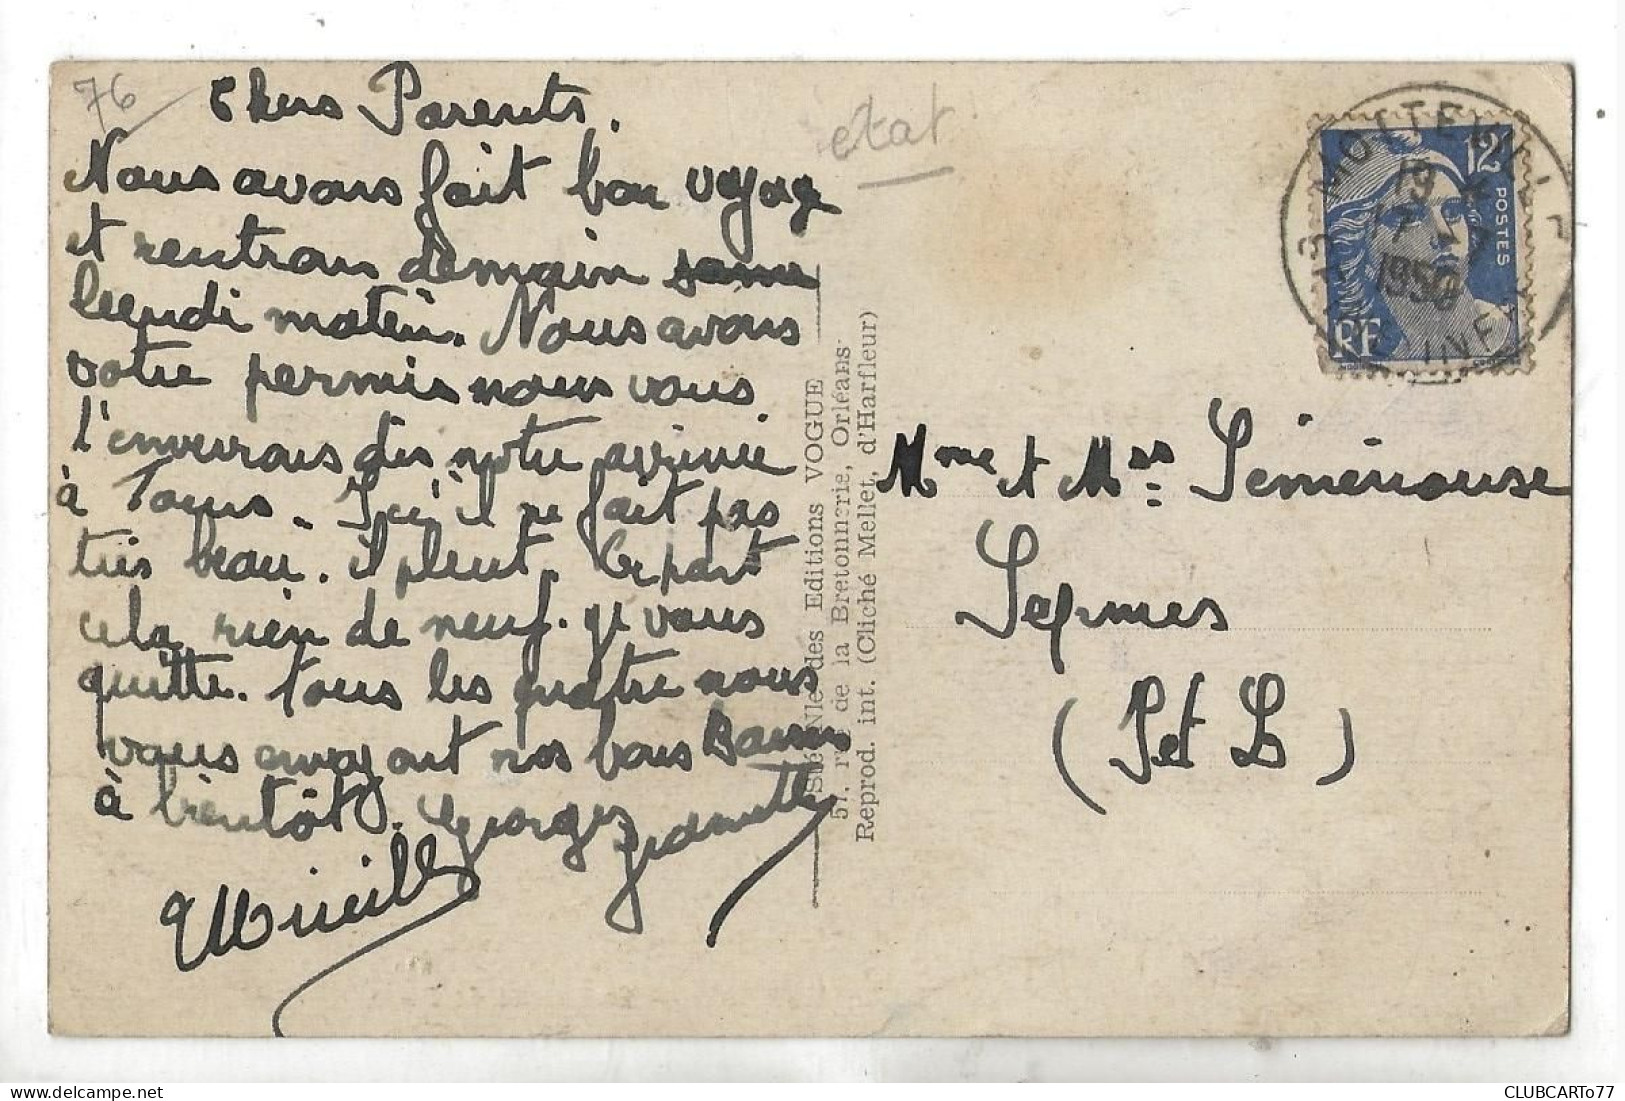 76
Chers Parents.
Nous avons fait bon voyage
et rentrons demain
Leundi matin. Nous avons
votre permis nous vous
l'enverons dès notre arrivée
à Tours. Ici il ne fait pas
très beau. il pleut. Apart
cela rien de neuf. je vous
quitte. tous les quatre nous
vous envoyant nos bons Baisers
à bientôt. Georges
Mireille
etat
Sté Nle des Editions VOGUE
57, rue de la Bretonnerie, Orléans
Reprod. int. (Cliché Mellet, d'Harfleur)
12
POSTES
RF
MOTTEVILLE
19
7
1950
SNE INFRE
Mme et Mrs
Sepmes
(I et L)
CLUBCARTO77